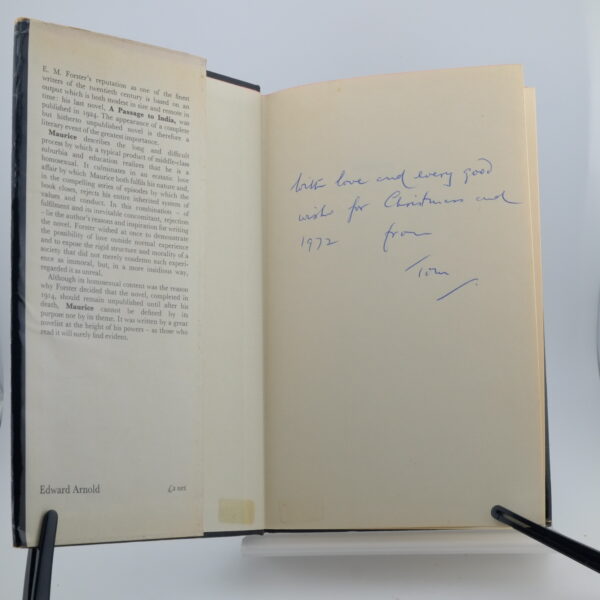 E. M. Forster's reputation as one of the finest
writers of the twentieth century is based on an
output which is both modest in size and remote in
time: his last novel, A Passage to India, was
published in 1924. The appearance of a complete
but hitherto unpublished novel is therefore a
literary event of the greatest importance.
Maurice describes the long and difficult
process by which a typical product of middle-class
suburbia and education realizes that he is a
homosexual. It culminates in an ecstatic love
affair by which Maurice both fulfils his nature and,
in the compelling series of episodes by which the
book closes, rejects his entire inherited system of
values and conduct. In this combination - of
fulfilment and its inevitable concomitant, rejection
- lie the author's reasons and inspiration for writing
the novel. Forster wished at once to demonstrate
the possibility of love outside normal experience
and to expose the rigid structure and morality of a
society that did not merely condemn such experi-
ence as immoral, but, in a more insidious way,
regarded it as unreal.
Although its homosexual content was the reason
why Forster decided that the novel, completed in
1914, should remain unpublished until after his
death, Maurice cannot be defined by its
purpose nor by its theme. It was written by a great
novelist at the height of his powers - as those who
read it will surely find evident.
Edward Arnold £2 net
With love and every good
wish for Christmas and
1972 from
Tom